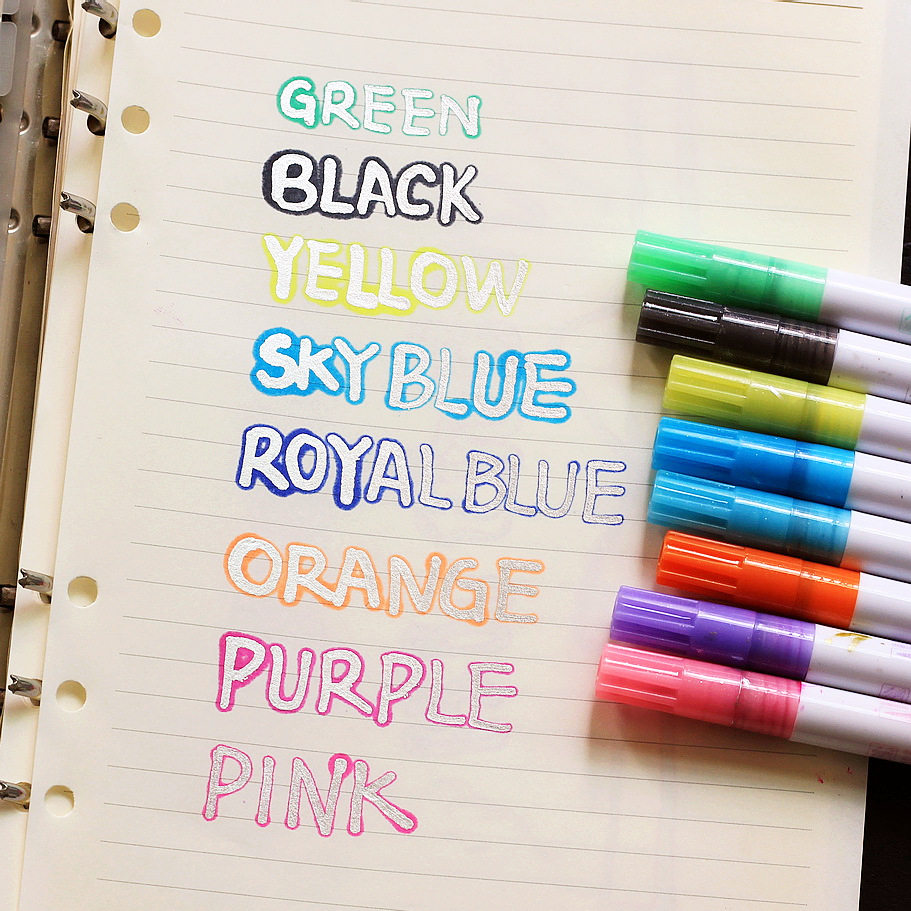 GREEN
BLACK
YELLOW
SKY BLUE
ROYAL BLUE
ORANGE
PURPLE
PINK